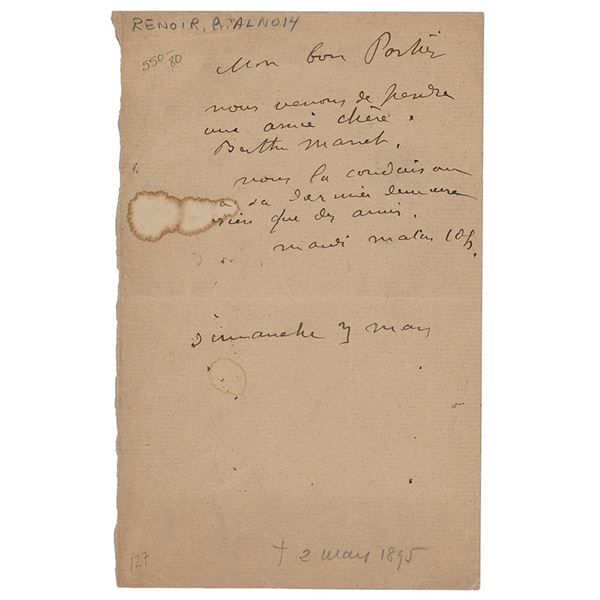 RENOIR, A. ALNO14
550-80
Mon bon Portier
nous venons de perdre
une amie chère.
Berthe Manet.
nous la conduisons
à sa dernière demeure
rien que des amis.
mardi matin 10h.
Dimanche 3 mars
127
† 2 mars 1895